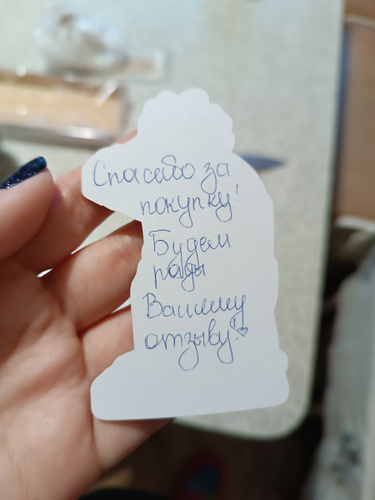 Спасибо за
покупку!
Будем
рады
Вашему
отзыву!♡